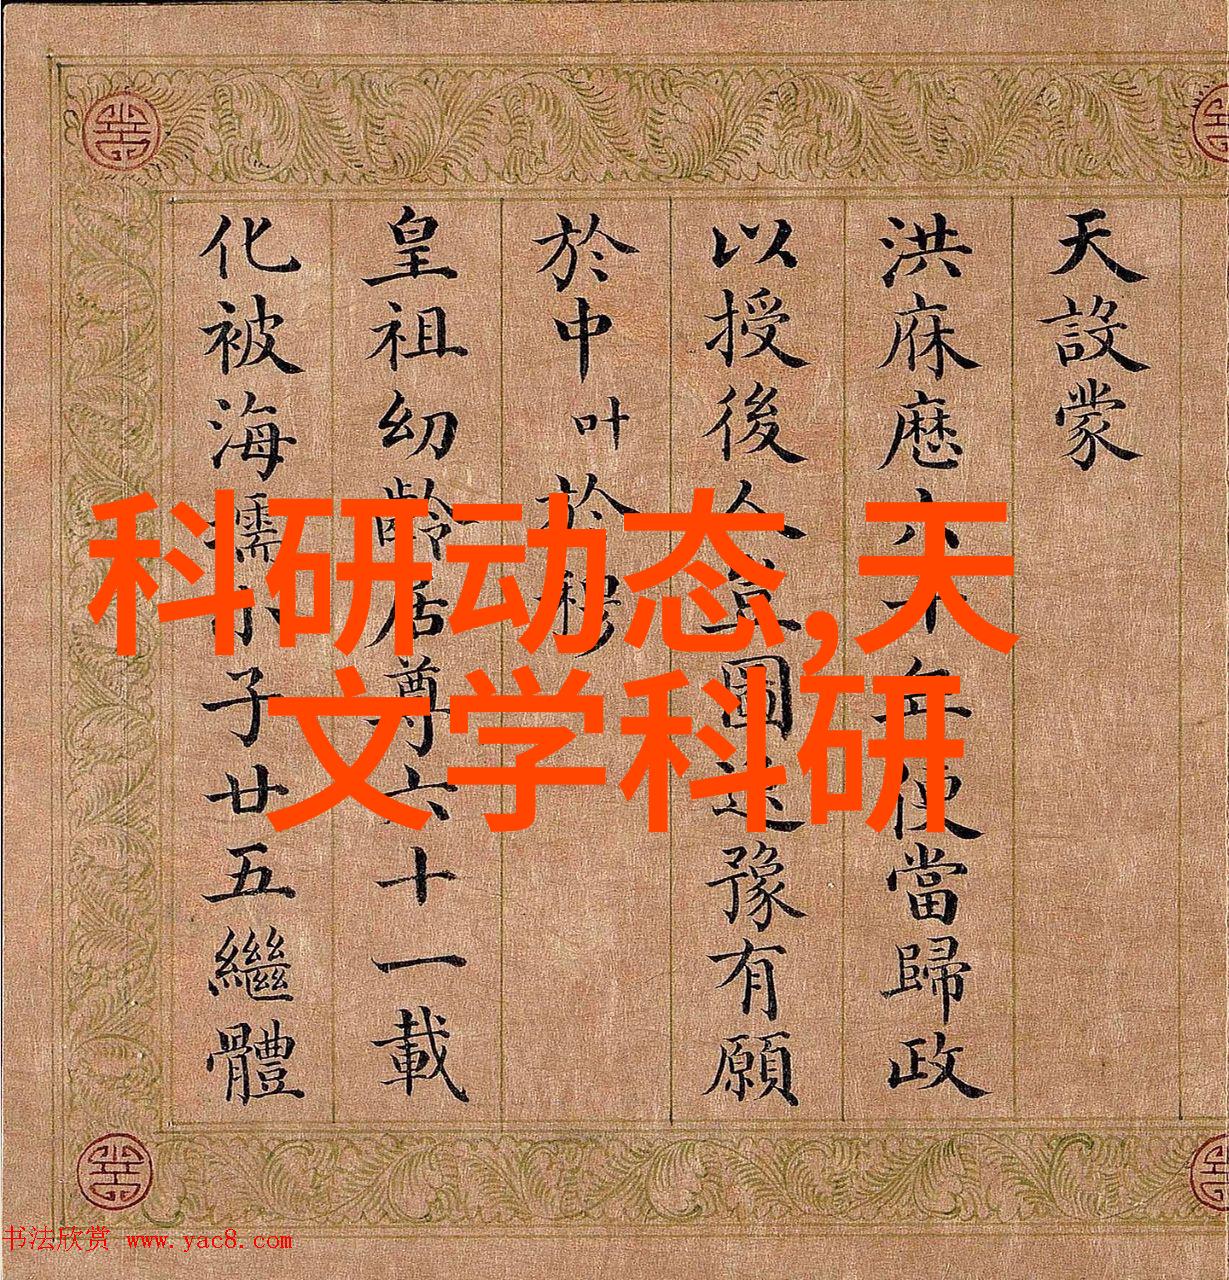 天設蒙
洪庥歷年便當歸政
以授後人圖豫有願
於中叶於穆
皇祖幼齡居尊六十一載
化被海小子廿五繼體
科研动态,天
文学科研
书法欣赏 www.yac8.com